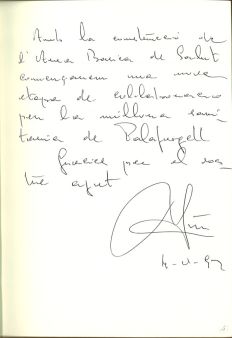 Amb la constitució de
l'Area Basica de Salut
començarem una nova
etapa de col·laboracio
per la millora sani-
taria de Palafrugell
Gracies per el vos-
tre ajut